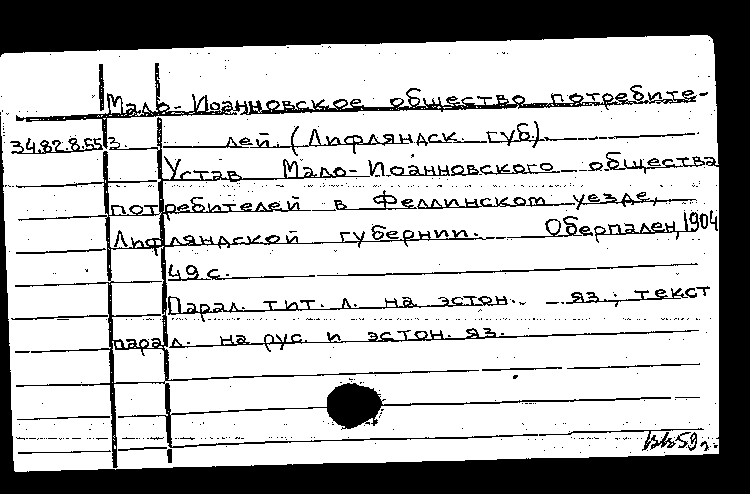 Мало-Иоанновское общество потребите-
34.82.8.553. лей. (Лифляндск. губ).
Устав Мало-Иоанновского общества
потребителей в Феллинском уезде,
Лифляндской губернии. Оберпален, 1904
49 с.
Парал. тит. л. на эстон. яз.; текст
парал. на рус. и эстон. яз.